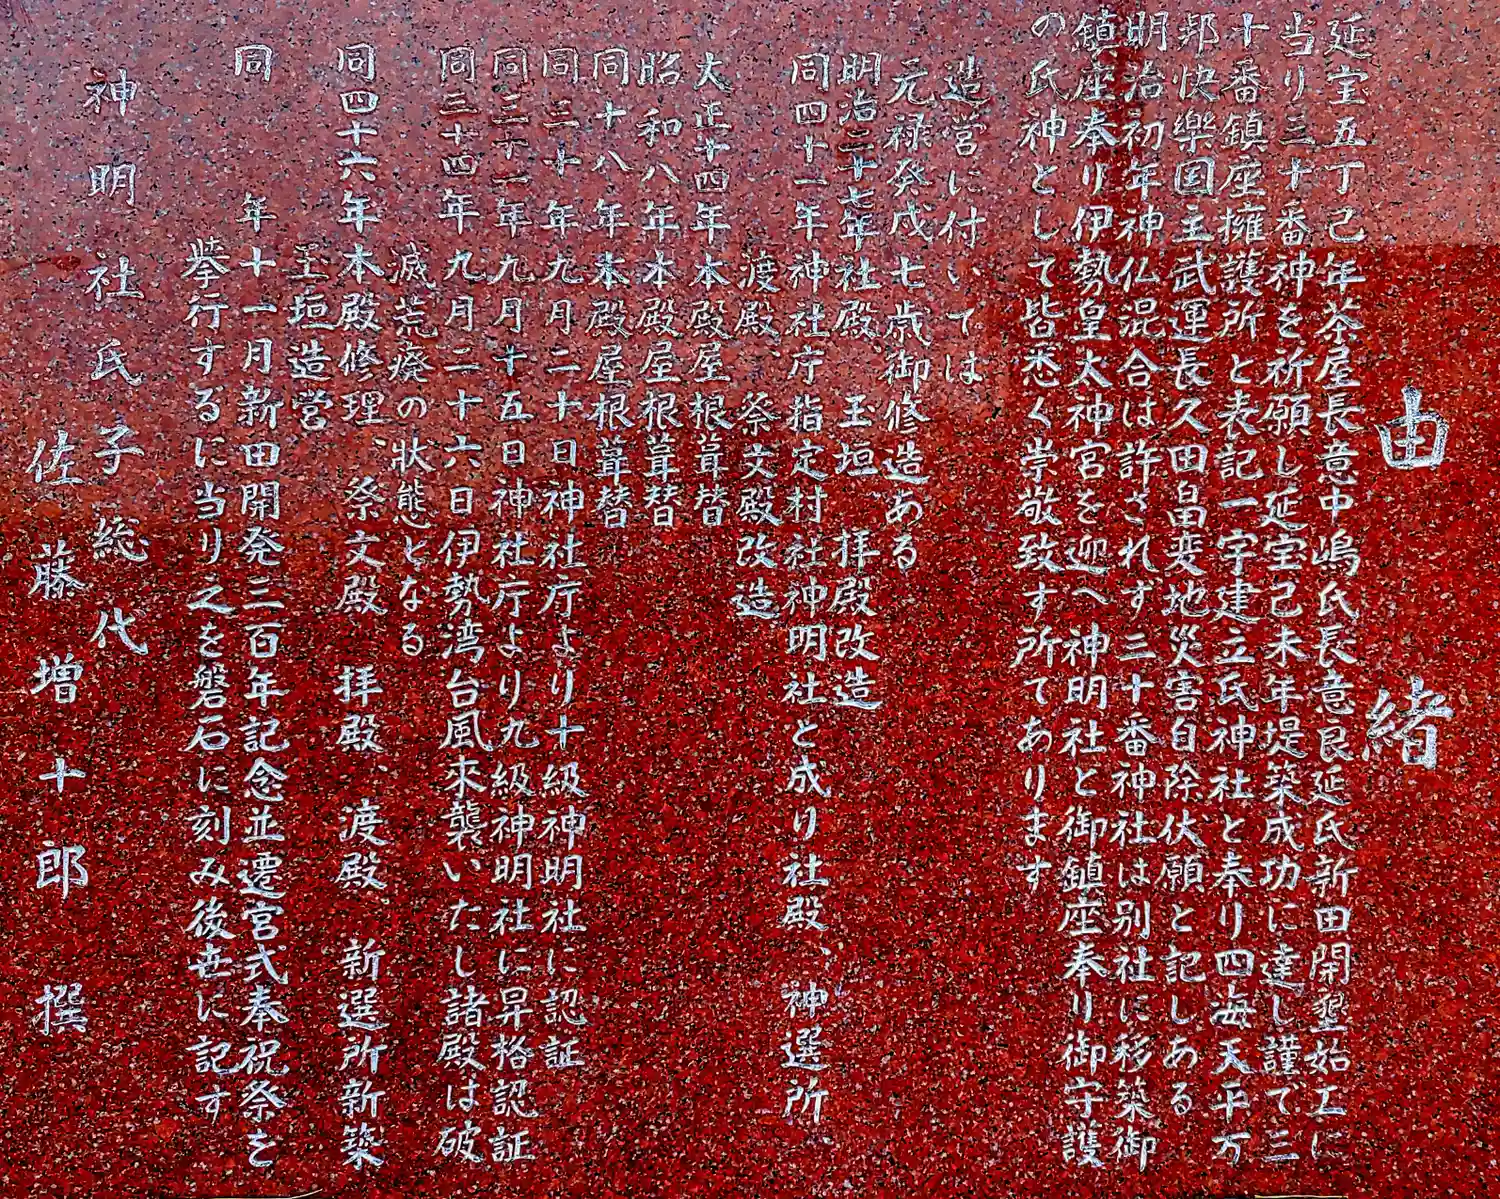 由緒
延宝五丁己年茶屋長意中嶋氏長意良延氏新田開墾始工に
当り三十番神を祈願し延宝己未年堤築成功に達し謹で三
十番鎮座擁護所と表記一宇建立氏神社と奉り四海天平万
邦快樂国主武運長久田畠変地災害自除伏願と記しある
明治初年神仏混合は許されず三十番神社は別社に移築御
鎮座奉り伊勢皇太神宮を迎へ神明社と御鎮座奉り御守護
の氏神として皆悉く崇敬致す所てあります
造営に付いては
元禄癸戌七歳御修造ある
明治二十七年社殿 玉垣 拝殿改造
同四十一年神社庁指定村社神明社と成り社殿、神選所、
渡殿、祭文殿改造
大正十四年本殿屋根葺替
昭和八年本殿屋根葺替
同十八年本殿屋根葺替
同三十年九月二十日神社庁より十級神明社に認証
同三十一年九月十五日神社庁より九級神明社に昇格認証
同三十四年九月二十六日伊勢湾台風来襲いたし諸殿は破
滅荒癈の状態となる
同四十六年本殿修理、祭文殿 拝殿、渡殿 新選所新築
玉垣造営
同 年十一月新田開発三百年記念並遷宮式奉祝祭を
挙行するに当り之を磐石に刻み後世に記す
神明社氏子総代
佐藤増十郎 撰